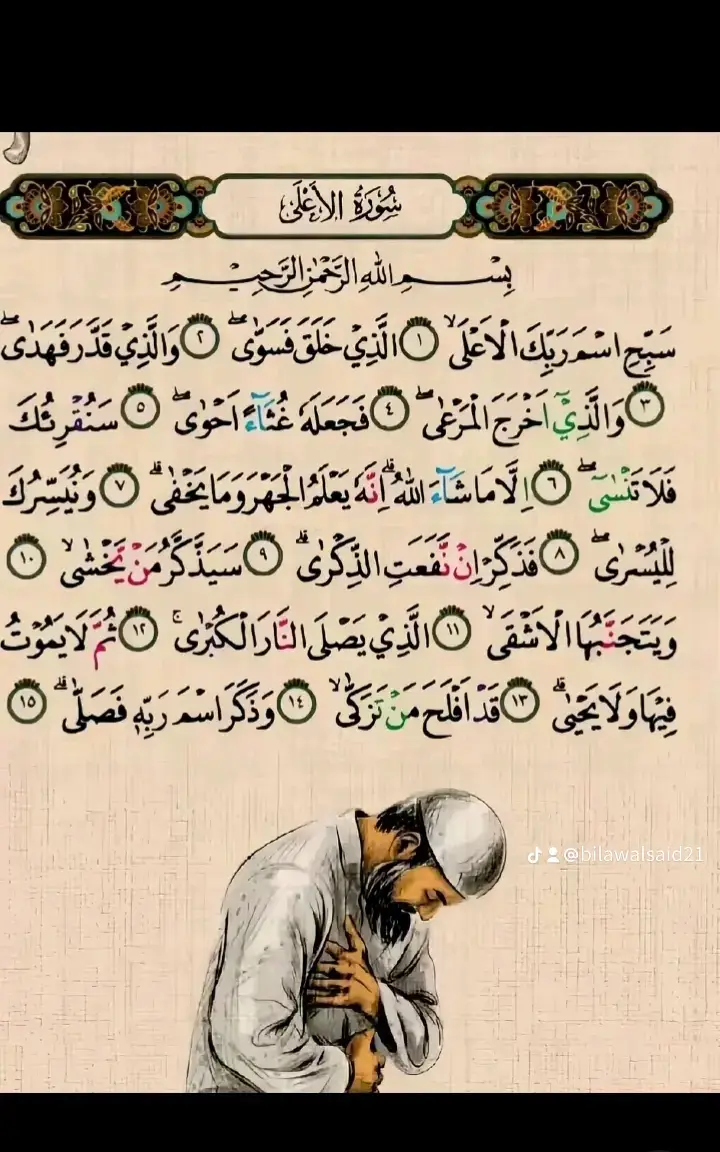 سُوْرَةُ الْأَعْلَى
بِسْمِ اللهِ الرَّحْمٰنِ الرَّحِيْمِ
سَبِّحِ اسْمَ رَبِّكَ الْاَعْلَىۙ ١ الَّذِيْ خَلَقَ فَسَوّٰىۖ ٢ وَالَّذِيْ قَدَّرَ فَهَدٰىۖ
٣ وَالَّذِيْٓ اَخْرَجَ الْمَرْعٰىۖ ٤ فَجَعَلَهٗ غُثَاۤءً اَحْوٰىۖ ٥ سَنُقْرِئُكَ
فَلَا تَنْسٰىٓۖ ٦ اِلَّا مَا شَاۤءَ اللّٰهُۗ اِنَّهٗ يَعْلَمُ الْجَهْرَ وَمَا يَخْفٰىۗ ٧ وَنُيَسِّرُكَ
لِلْيُسْرٰىۖ ٨ فَذَكِّرْ اِنْ نَّفَعَتِ الذِّكْرٰىۗ ٩ سَيَذَّكَّرُ مَنْ يَّخْشٰىۙ ١٠
وَيَتَجَنَّبُهَا الْاَشْقَىۙ ١١ الَّذِيْ يَصْلَى النَّارَ الْكُبْرٰىۚ ١٢ ثُمَّ لَا يَمُوْتُ
فِيْهَا وَلَا يَحْيٰىۗ ١٣ قَدْ اَفْلَحَ مَنْ تَزَكّٰىۙ ١٤ وَذَكَرَ اسْمَ رَبِّهٖ فَصَلّٰىۗ ١٥
@bilawalsaid21